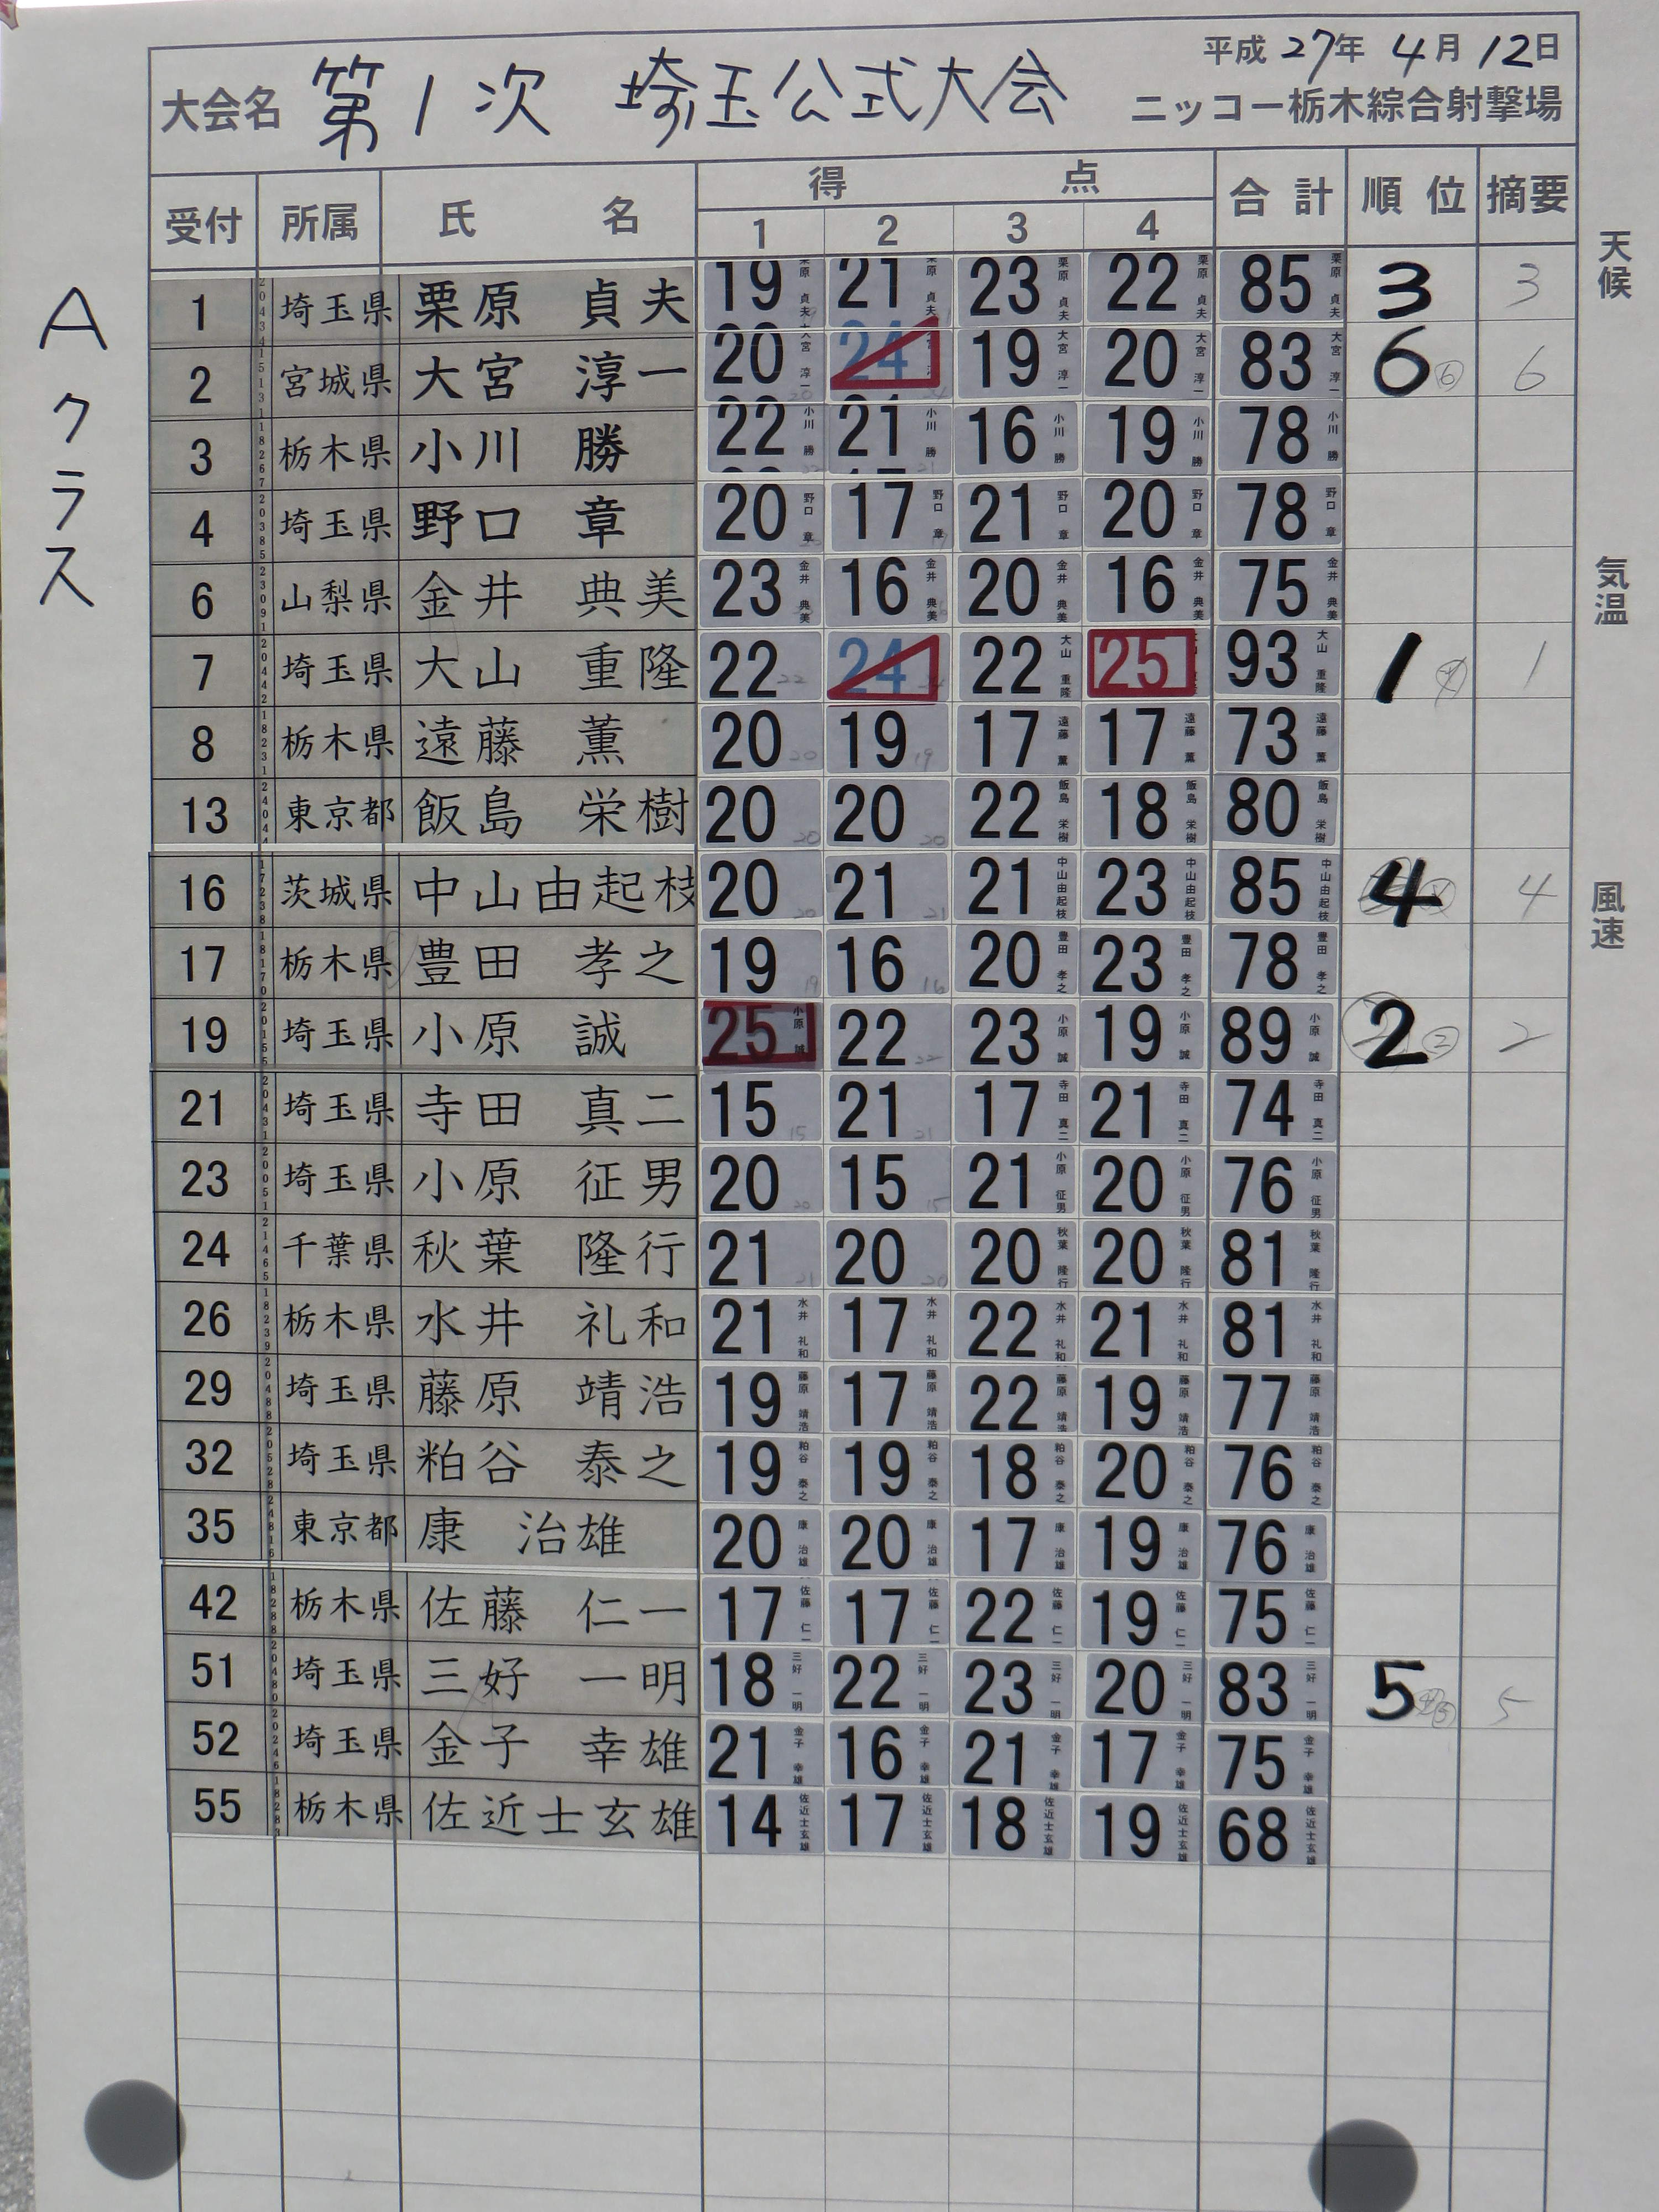 平成 27年 4月 12日
大会名 第1次 埼玉公式大会 ニッコー栃木綜合射撃場
Aクラス
受付 所属 氏名 得点 合計 順位 摘要
1 2 3 4
1 埼玉県 栗原 貞夫 19 21 23 22 85 3 3
2 宮城県 大宮 淳一 20 24 19 20 83 6 6 6
3 栃木県 小川 勝 22 21 16 19 78
4 埼玉県 野口 章 20 17 21 20 78
6 山梨県 金井 典美 23 16 20 16 75
7 埼玉県 大山 重隆 22 24 22 25 93 1 1
8 栃木県 遠藤 薫 20 19 17 17 73
13 東京都 飯島 栄樹 20 20 22 18 80
16 茨城県 中山由起枝 20 21 21 23 85 4 4
17 栃木県 豊田 孝之 19 16 20 23 78
19 埼玉県 小原 誠 25 22 23 19 89 2 2 2
21 埼玉県 寺田 真二 15 21 17 21 74
23 埼玉県 小原 征男 20 15 21 20 76
24 千葉県 秋葉 隆行 21 20 20 20 81
26 栃木県 水井 礼和 21 17 22 21 81
29 埼玉県 藤原 靖浩 19 17 22 19 77
32 埼玉県 粕谷 泰之 19 19 18 20 76
35 東京都 康 治雄 20 20 17 19 76
42 栃木県 佐藤 仁一 17 17 22 19 75
51 埼玉県 三好 一明 18 22 23 20 83 5 5
52 埼玉県 金子 幸雄 21 16 21 17 75
55 栃木県 佐近士玄雄 14 17 18 19 68
天候
気温
風速